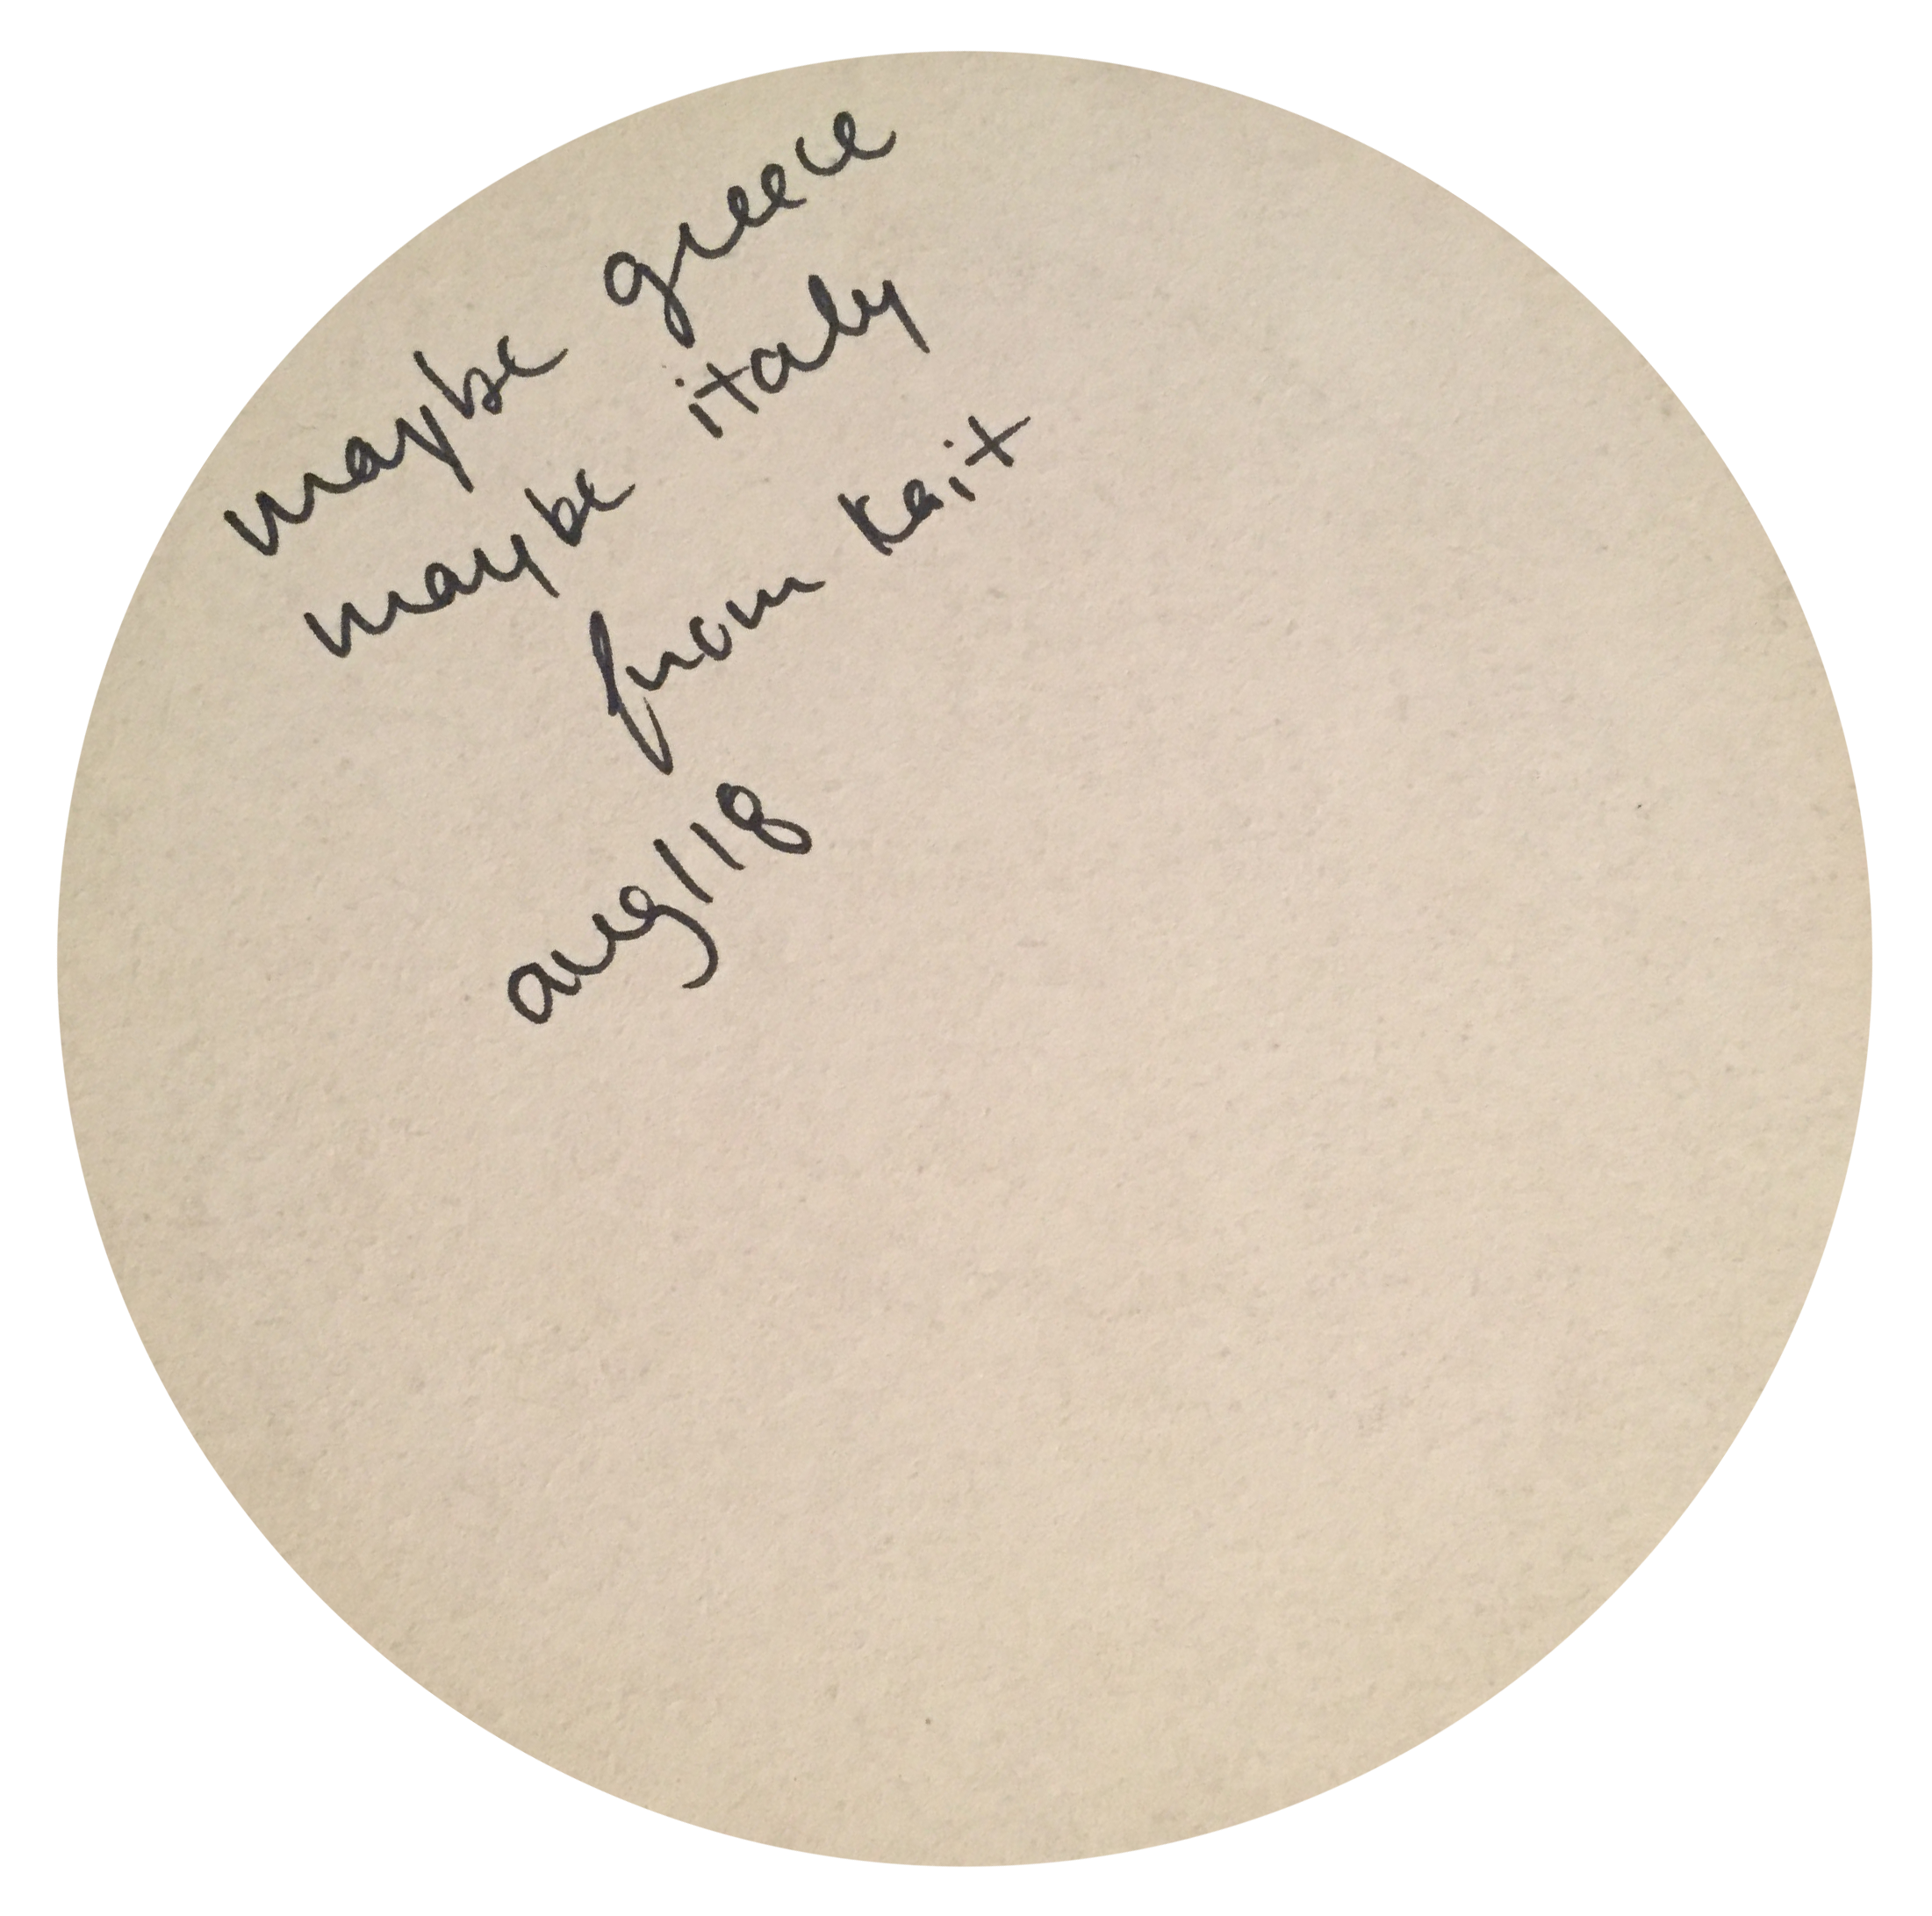 maybe greece
maybe italy
from kait
aug/18